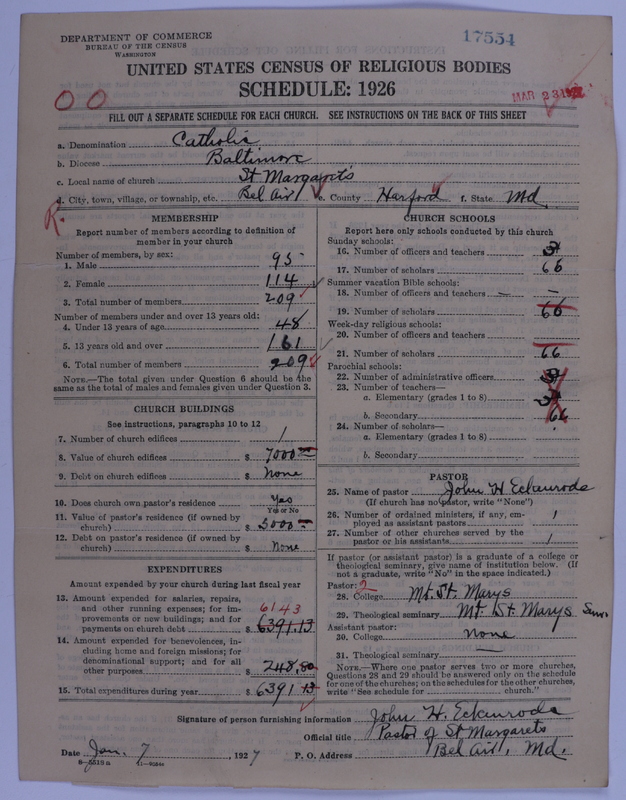 DEPARTMENT OF COMMERCE
BUREAU OF THE CENSUS
WASHINGTON
17554
UNITED STATES CENSUS OF RELIGIOUS BODIES
SCHEDULE: 1926
MAR 23 192
0 0
FILL OUT A SEPARATE SCHEDULE FOR EACH CHURCH. SEE INSTRUCTIONS ON THE BACK OF THIS SHEET
a. Denomination Catholic
b. Diocese Baltimore
c. Local name of church St Margaret's
d. City, town, village, or township, etc. Bel Air e. County Harford f. State Md.
R.
MEMBERSHIP
Report number of members according to definition of
member in your church
Number of members, by sex:
1. Male 95
2. Female 114
3. Total number of members 209
Number of members under and over 13 years old:
4. Under 13 years of age 48
5. 13 years old and over 161
6. Total number of members 209
NOTE.—The total given under Question 6 should be the
same as the total of males and females given under Question 3.
CHURCH BUILDINGS
See instructions, paragraphs 10 to 12
7. Number of church edifices 1
8. Value of church edifices $ 7000
9. Debt on church edifices $ None
10. Does church own pastor's residence Yes
Yes or No
11. Value of pastor's residence (if owned by
church) $ 5000
12. Debt on pastor's residence (if owned by
church) $ None
EXPENDITURES
Amount expended by your church during last fiscal year
13. Amount expended for salaries, repairs,
and other running expenses; for im-
provements or new buildings; and for
payments on church debt $ 6391.13
6143
14. Amount expended for benevolences, in-
cluding home and foreign missions; for
denominational support; and for all
other purposes $ 248.80
15. Total expenditures during year $ 6391 13
CHURCH SCHOOLS
Report here only schools conducted by this church
Sunday schools:
16. Number of officers and teachers
17. Number of scholars 66
Summer vacation Bible schools:
18. Number of officers and teachers —
19. Number of scholars 66
Week-day religious schools:
20. Number of officers and teachers
21. Number of scholars 66
Parochial schools:
22. Number of administrative officers
23. Number of teachers—
a. Elementary (grades 1 to 8)
b. Secondary 66
24. Number of scholars—
a. Elementary (grades 1 to 8)
b. Secondary
PASTOR
25. Name of pastor John H Eckenrode
(If church has no pastor, write "None")
26. Number of ordained ministers, if any, em-
ployed as assistant pastors 1
27. Number of other churches served by the
pastor or his assistants 1
If pastor (or assistant pastor) is a graduate of a college or
theological seminary, give name of institution below. (If
not a graduate, write "No" in the space indicated.)
Pastor: 2
28. College Mt. St. Marys
29. Theological seminary Mt. St. Marys Sem.
Assistant pastor:
30. College none
31. Theological seminary —
NOTE.—Where one pastor serves two or more churches,
Questions 28 and 29 should be answered only on the schedule
for one of the churches; on the schedules for the other churches,
write "See schedule for church."
Signature of person furnishing information John H. Eckenrode
Official title Pastor of St Margarets
Date Jan. 7, 1927 P. O. Address Bel Air, Md.